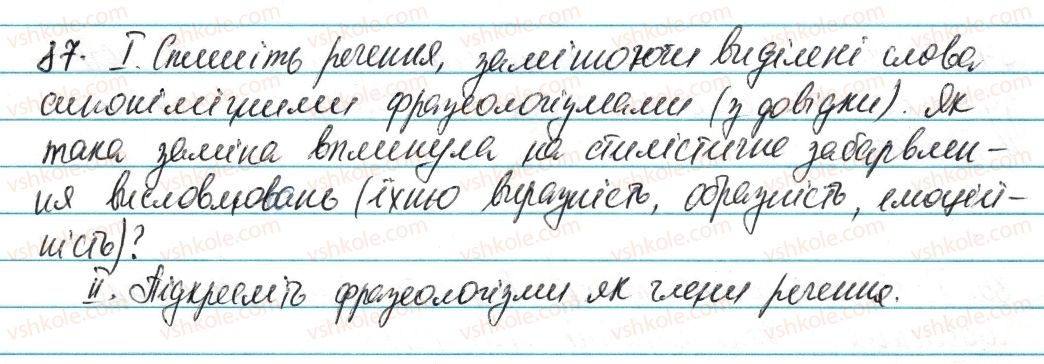 87. I. Спишіть речення, замінюючи виділені слова
синонімічними фразеологізмами (з довідки). Як
така заміна вплинула на стилістичне забарвлен-
ня висловлювань (їхню виразність, образність, емоцій-
ність)?
II. Підкресліть фразеологізми як члени речення.